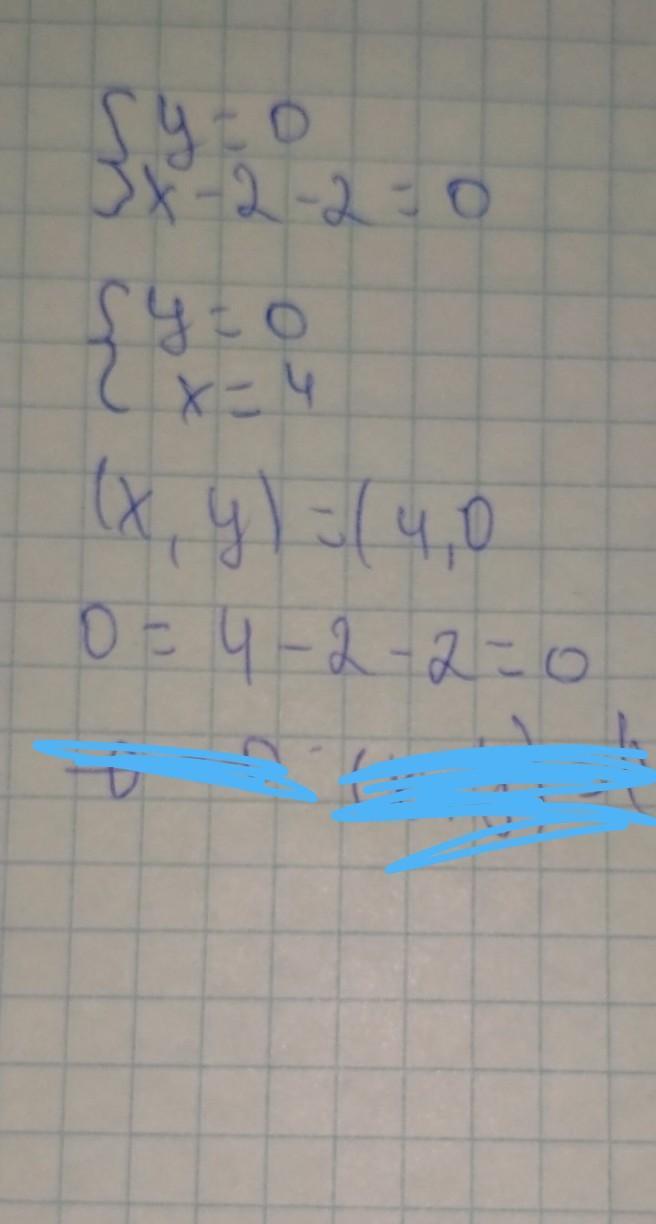 { y = 0
x - 2 - 2 = 0
{ y = 0
x = 4
(x, y) = (4,0
0 = 4 - 2 - 2 = 0